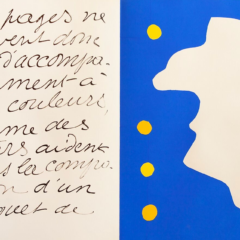 pages ne
vent donc
d'accompa-
ment à
couleurs,
me des
rs aident
s la compo-
on d'un
quet de